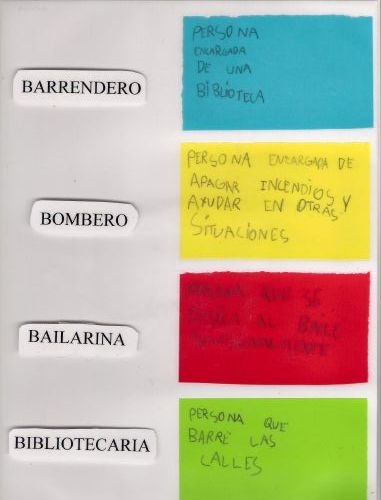 BARRENDERO
PERSONA
ENCARGADA
DE UNA
BIBLIOTECA
BOMBERO
PERSONA ENCARGADA DE
APAGAR INCENDIOS Y
AYUDAR EN OTRAS
SITUACIONES
BAILARINA
PERSONA QUE SE
DEDICA AL BAILE
BIBLIOTECARIA
PERSONA QUE
BARRE LAS
CALLES